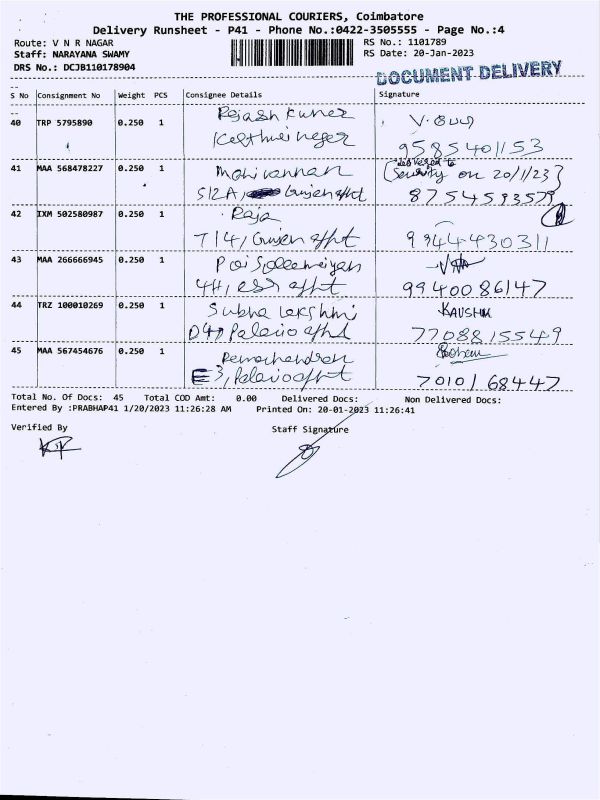 THE PROFESSIONAL COURIERS, Coimbatore
Delivery Runsheet - P41 - Phone No.:0422-3505555 - Page No.:4
Route: V N R NAGAR RS No.: 1101789
Staff: NARAYANA SWAMY RS Date: 20-Jan-2023
DRS No.: DCJB110178904
DOCUMENT DELIVERY
S No Consignment No Weight PCS Consignee Details Signature
40 TRP 5795890 0.250 1
9585401153
41 MAA 568478227 0.250 1 Mohivannan delivered to
(Security on 20/1/23)
S12A, 8754593579
42 IXM 502580987 0.250 1 Raja
T14, 9944430311
43 MAA 266666945 0.250 1
4H, 9940086147
44 TRZ 100010269 0.250 1 Subha
7708815549
45 MAA 567454676 0.250 1
E3, 7010168447
Total No. Of Docs: 45 Total COD Amt: 0.00 Delivered Docs: Non Delivered Docs:
Entered By :PRABHAP41 1/20/2023 11:26:28 AM Printed On: 20-01-2023 11:26:41
Verified By Staff Signature